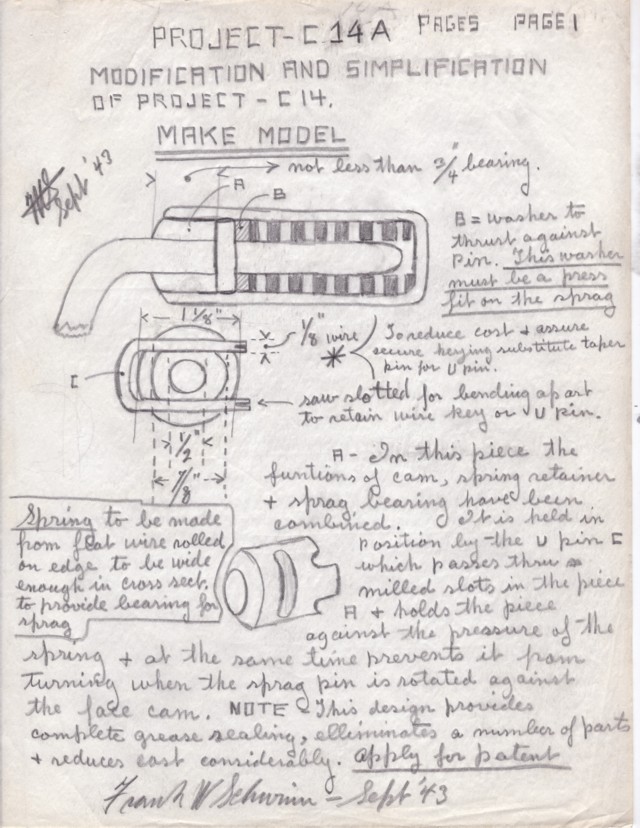 PROJECT-C 14A PAGES PAGE 1
MODIFICATION AND SIMPLIFICATION
OF PROJECT - C 14.
MAKE MODEL
Sept '43
not less than 3/4" bearing.
A
B
B = washer to
thrust against
Pin. This washer
must be a press
fit on the sprag
1 1/8"
1/8" wire
To reduce cost & assure
secure keying substitute taper
pin for U pin.
C
saw slotted for bending apart
to retain wire key or U pin.
1/2"
7/8"
A - In this piece the
funtions of cam, spring retainer
+ sprag bearing have been
combined. It is held in
position by the U pin C
which passes thru
milled slots in the piece
A + holds the piece
against the pressure of the
Spring to be made
from flat wire rolled
on edge to be wide
enough in cross sect.
to provide bearing for
sprag
spring + at the same time prevents it from
turning when the sprag pin is rotated against
the face cam. NOTE - This design provides
complete grease sealing, elliminates a number of parts
+ reduces cost considerably. apply for patent
Frank W Schwinn - Sept '43